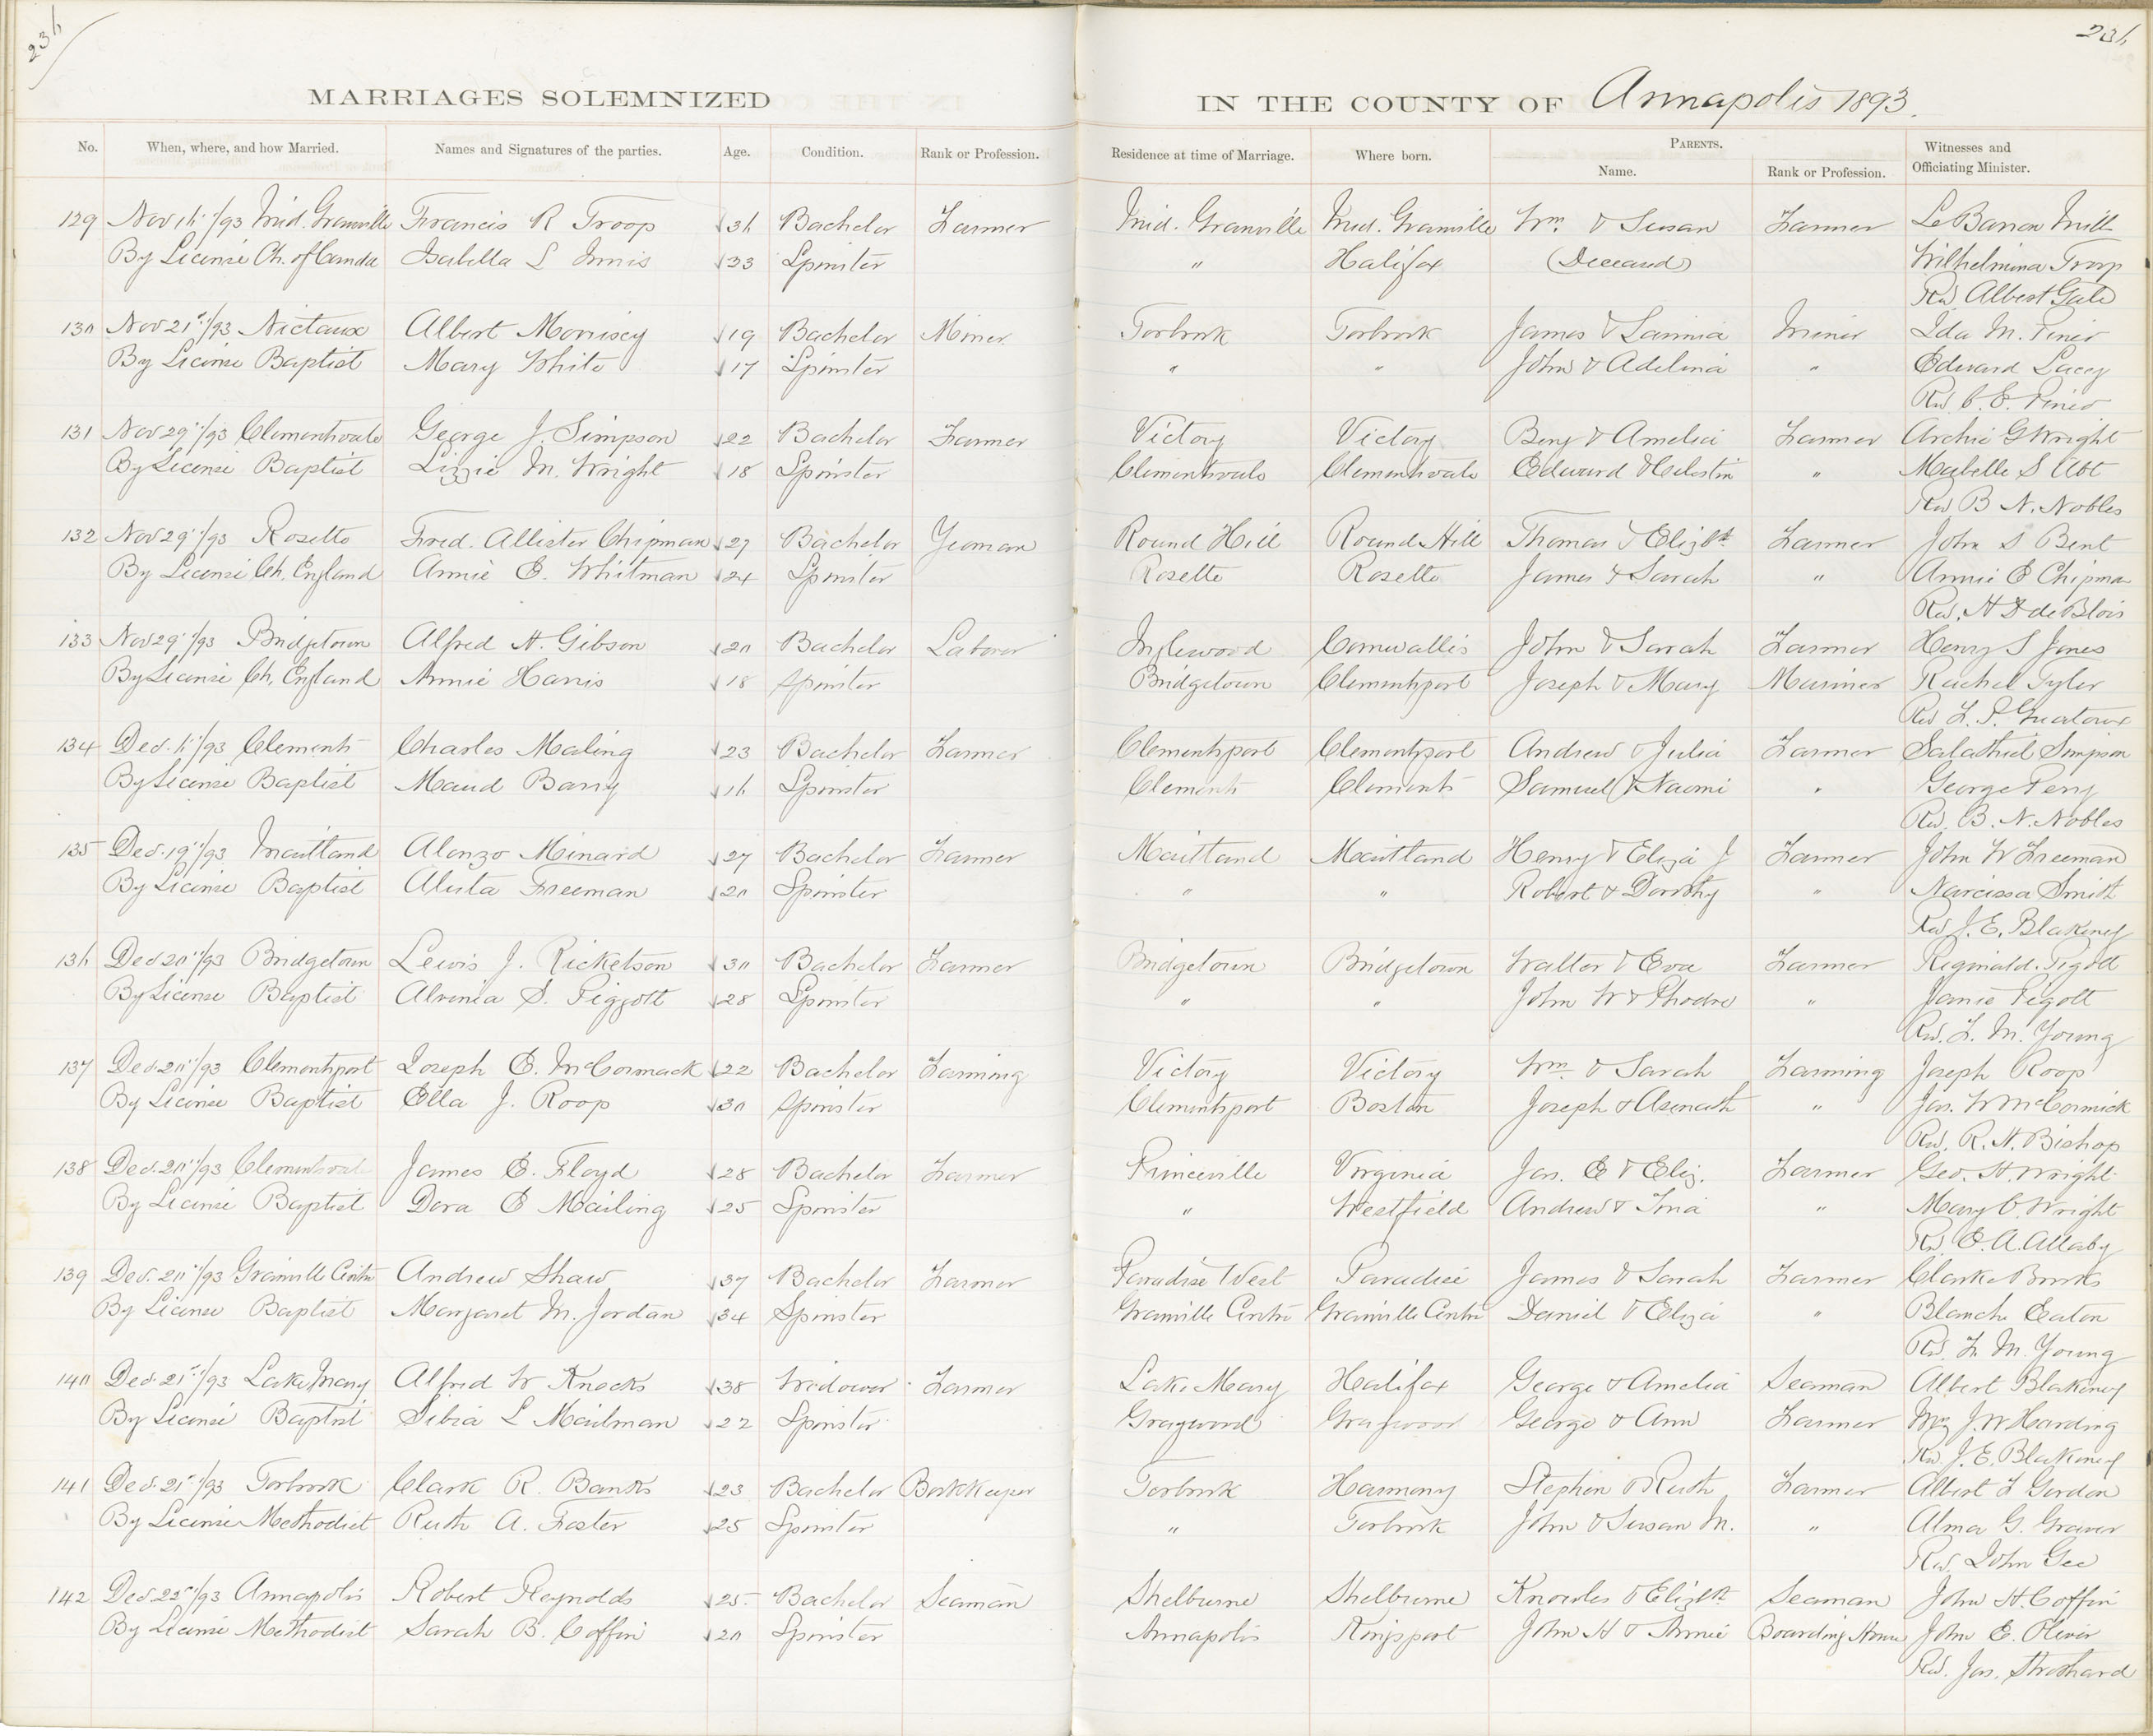 236
236
MARRIAGES SOLEMNIZED IN THE COUNTY OF Annapolis 1893.
No. When, where, and how Married. Names and Signatures of the parties. Age. Condition. Rank or Profession. Residence at time of Marriage. Where born. PARENTS. Witnesses and
Name. Rank or Profession. Officiating Minister.
129 Nov 16"/93 Mid. Granville Francis R Troop 36 Bachelor Farmer Mid. Granville Mid. Granville Wm & Susan Farmer Le Baron Mills
By License Ch. of Canada Isabella L Innis 33 Spinster " Halifax (Deceased) Wilhelmina Troop
Rev Albert Gale
130 Nov 21st/93 Nictaux Albert Morrisey 19 Bachelor Miner Torbrook Torbrook James & Lavinia Miner Ida M. Pineo
By License Baptist Mary White 17 Spinster " " John & Adelina " Edward Lacey
Rev. C. E. Pineo
131 Nov 29"/93 Clementsvale George J. Simpson 22 Bachelor Farmer Victory Victory Benj & Amelia Farmer Archie G Wright
By License Baptist Lizzie M. Wright 18 Spinster Clementsvale Clementsvale Edward & Celestin " Mabelle S Abt
Rev B. N. Nobles
132 Nov 29"/93 Rosette Fred. Allister Chipman 27 Bachelor Yeoman Round Hill Round Hill Thomas & Elizbt Farmer John S Bent
By License Ch. England Annie E. Whitman 24 Spinster Rosette Rosette James & Sarah " Annie E Chipman
Rev. H D de Blois
133 Nov 29"/93 Bridgetown Alfred H. Gibson 20 Bachelor Laborer Inglewood Cornwallis John & Sarah Farmer Henry S Jones
By License Ch. England Annie Harris 18 Spinster Bridgetown Clementsport Joseph & Mary Mariner Rachel Tyler
Rev F. P. Greatorex
134 Dec. 6"/93 Clements Charles Maling 23 Bachelor Farmer Clementsport Clementsport Andrew & Julia Farmer Salathiel Simpson
By License Baptist Maud Barry 16 Spinster Clements Clements Samuel & Naomi " George Perry
Rev. B. N. Nobles
135 Dec. 19"/93 Maitland Alonzo Minard 27 Bachelor Farmer Maitland Maitland Henry & Eliza J Farmer John W Freeman
By License Baptist Alista Freeman 20 Spinster " " Robert & Dorothy " Narcissa Smith
Rev J. E. Blakeney
136 Dec 20"/93 Bridgetown Lewis J. Ricketson 30 Bachelor Farmer Bridgetown Bridgetown Walter & Eva Farmer Reginald Pigott
By License Baptist Alvenia S. Piggott 28 Spinster " " John W & Phodre " Janie Pigott
Rev. F. M. Young
137 Dec. 20"/93 Clementsport Joseph E. McCormack 22 Bachelor Farming Victory Victory Wm & Sarah Farming Joseph Roop
By License Baptist Ella J. Roop 30 Spinster Clementsport Boston Joseph & Asenath " Jas. W McCormick
Rev. R. H. Bishop
138 Dec. 20"/93 Clementsvale James E. Floyd 28 Bachelor Farmer Princeville Virginia Jas. E & Eliz. Farmer Geo. H. Wright
By License Baptist Dora E Mailing 25 Spinster " Westfield Andrew & " Mary C. Wright
Rev. E. A. Allaby
139 Dec. 20"/93 Granville Centre Andrew Shaw 37 Bachelor Farmer Paradise West Paradise James & Sarah Farmer Clarke Banks
By License Baptist Margaret M. Jordan 34 Spinster Granville Centre Granville Centre Daniel & Eliza " Blanche Eaton
Rev. F. M. Young
140 Dec. 21st/93 Lake Mary Alfred W Knocks 38 Widower Farmer Lake Mary Halifax George & Amelia Seaman Albert Blakeney
By License Baptist Sibia L Mailman 22 Spinster Graywood Graywood George & Ann Farmer J. W Harding
Rev. J. E. Blakeney
141 Dec. 21st/93 Torbrook Clark R. Banks 23 Bachelor Bookkeeper Torbrook Harmony Stephen & Ruth Farmer Albert F Gordon
By License Methodist Ruth A. Foster 25 Spinster " Torbrook John & Susan M. " Alma G. Graves
Rev. John Gee
142 Dec 22nd/93 Annapolis Robert Reynolds 25 Bachelor Seaman Shelburne Shelburne Knowles & Elizbt Seaman John H. Coffin
By License Methodist Sarah B. Coffin 20 Spinster Annapolis Kingsport John H & Annie Boarding House John E. Oliver
Rev. Jas. Strothard